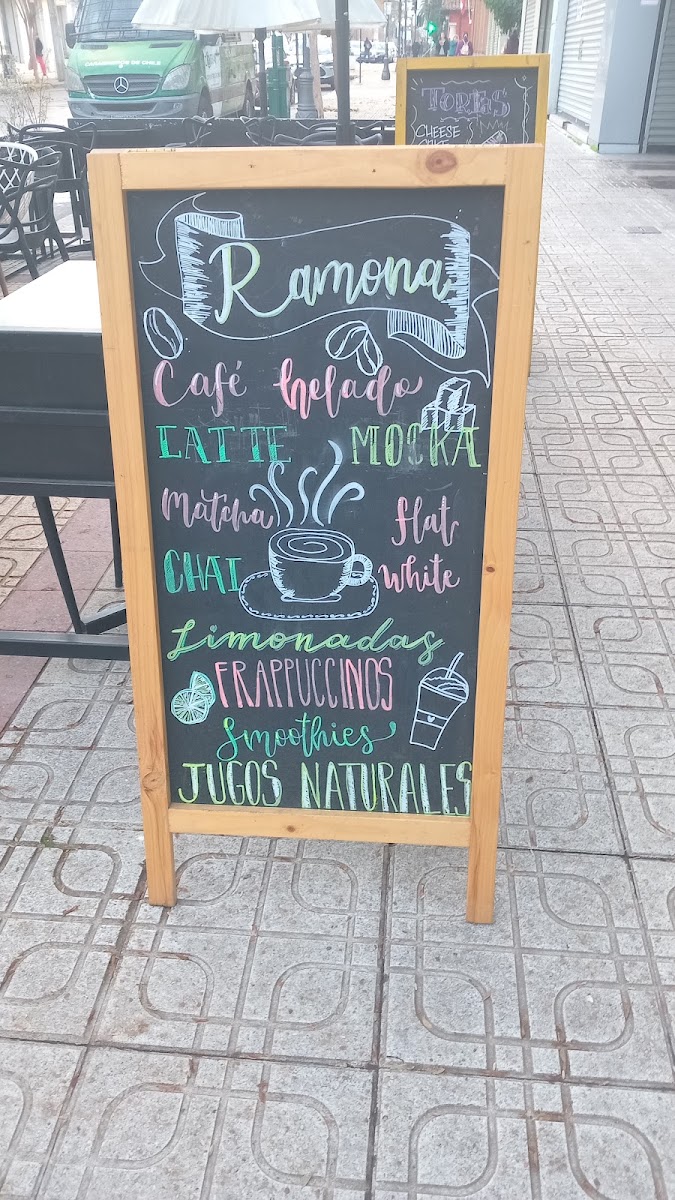 CARABINEROS DE CHILE
TORTAS
CHEESE
Ramona
Café helado
LATTE MOCKA
Matcha
flat
CHAI
white
Limonadas
FRAPPUCCINOS
Smoothies
JUGOS NATURALES